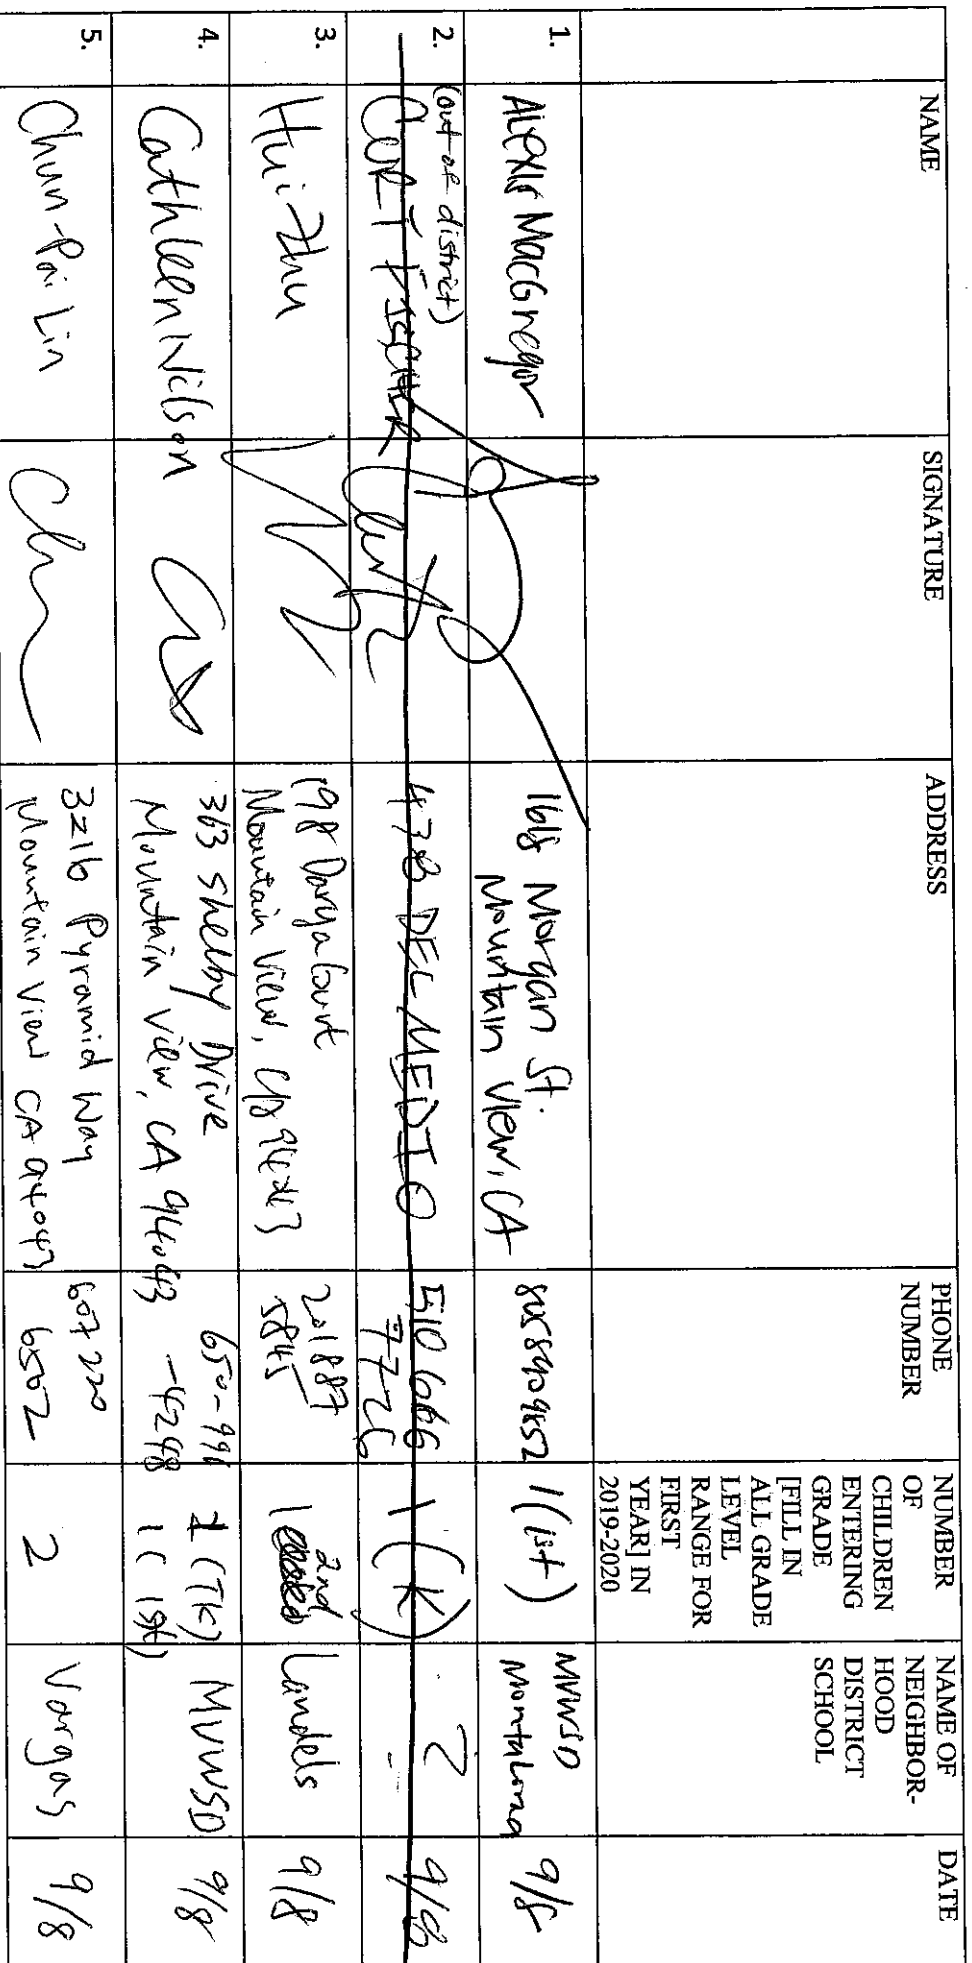 NAME
SIGNATURE
ADDRESS
PHONE
NUMBER
NUMBER
OF
CHILDREN
ENTERING
GRADE
[FILL IN
ALL GRADE
LEVEL
RANGE FOR
FIRST
YEAR] IN
2019-2020
NAME OF
NEIGHBOR-
HOOD
DISTRICT
SCHOOL
DATE
1.
Alexis MacGregor
Morgan St.
Mountain View, CA
1 (1st)
MVWSD
9/8
2.
(out of district)
CORT FISCHER
DEL MEDIO
510 666
7726
1 (K)
?
9/8
3.
Hui Zhu
198 Darya Court
Mountain View,
201 887
5845
1 2nd
Landels
9/8
4.
Cathleen Wilson
363 Shelby Drive
Mountain View, CA 94043
-4298
1 (TK)
1 (1st)
MVWSD
9/8
5.
Chun-Pai Lin
3216 Pyramid Way
Mountain View CA 94043
607 220
6502
2
Vargas
9/8